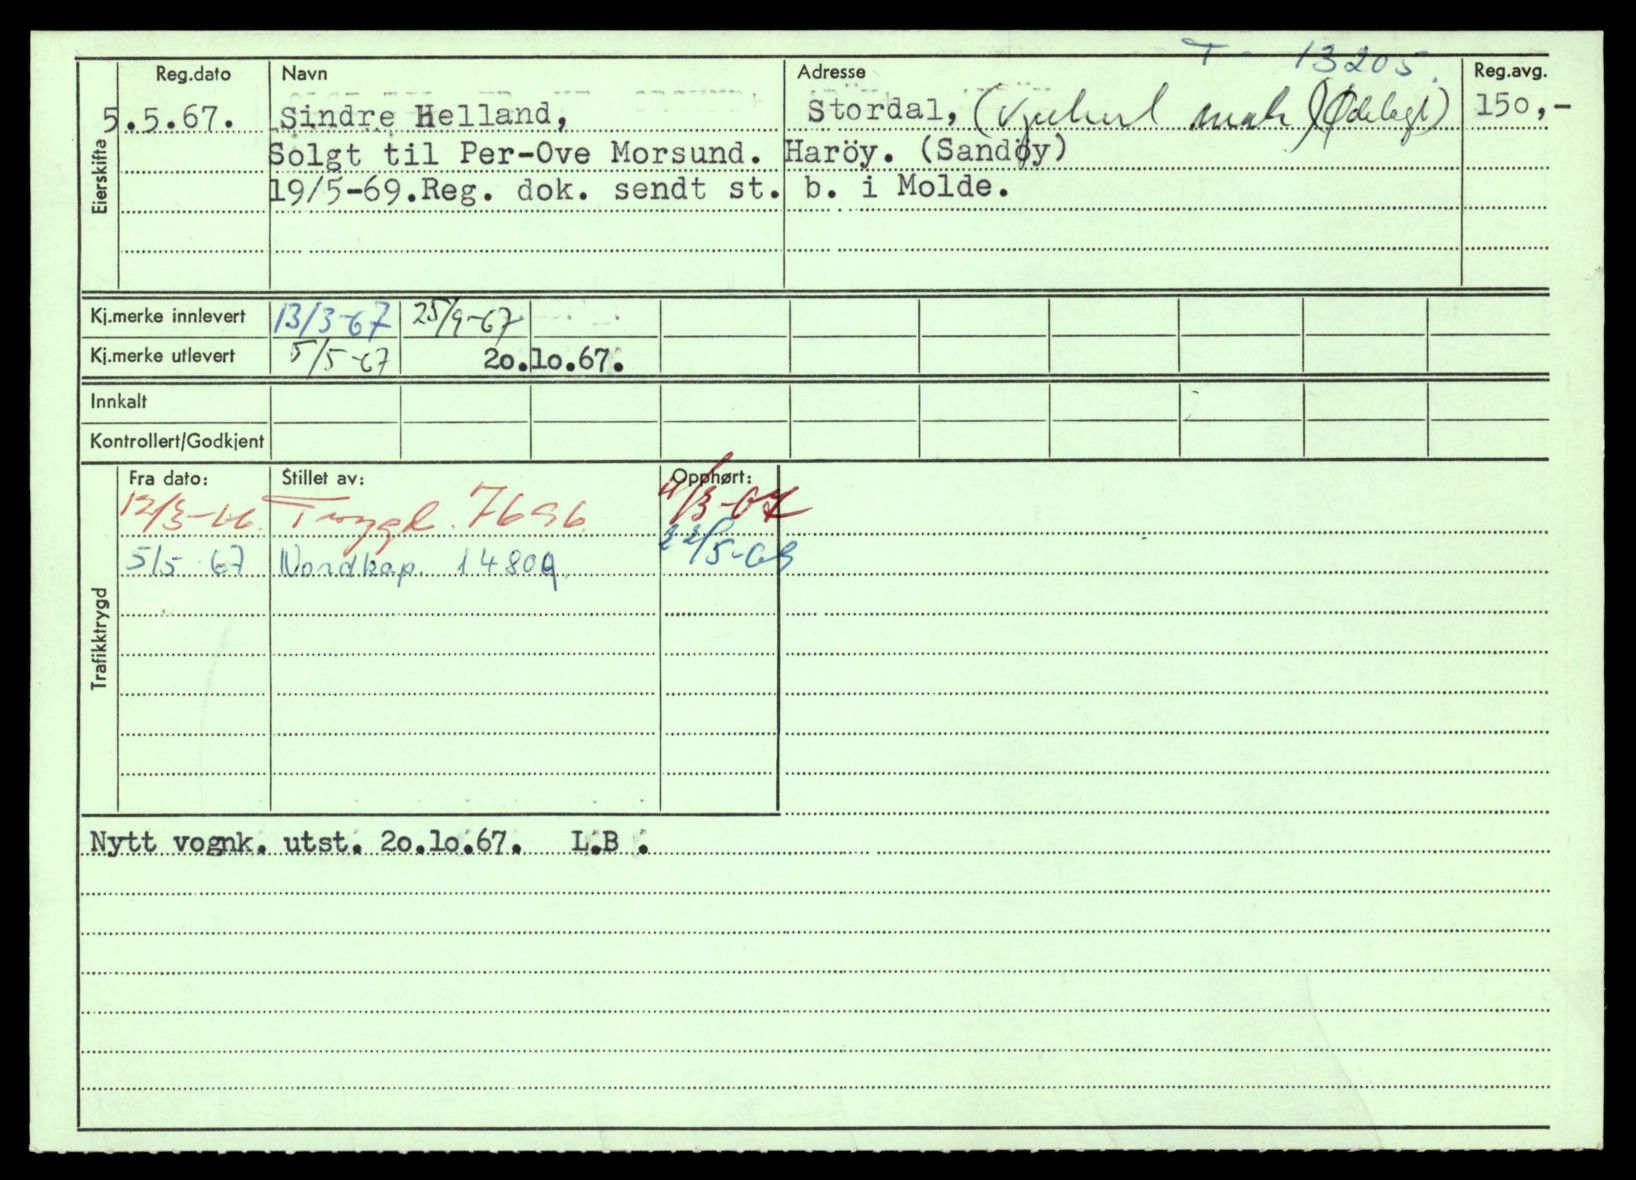 T - 13205.
Reg.dato Navn Adresse Reg.avg.
5.5.67. Sindre Helland, Stordal, (Ødelagt) 150,-
Solgt til Per-Ove Morsund. Haröy. (Sandøy)
19/5-69.Reg. dok. sendt st. b. i Molde.
Eierskifte
Kj.merke innlevert 13/3-67 25/9-67
Kj.merke utlevert 5/5-67 20.10.67.
Innkalt
Kontrollert/Godkjent
Fra dato: Stillet av: Opphørt:
12/3-66. Trygd. 7696
5/5-67 Nordkap. 14809 22/5-69
Trafikktrygd
Nytt vognk. utst. 20.10.67. L.B .